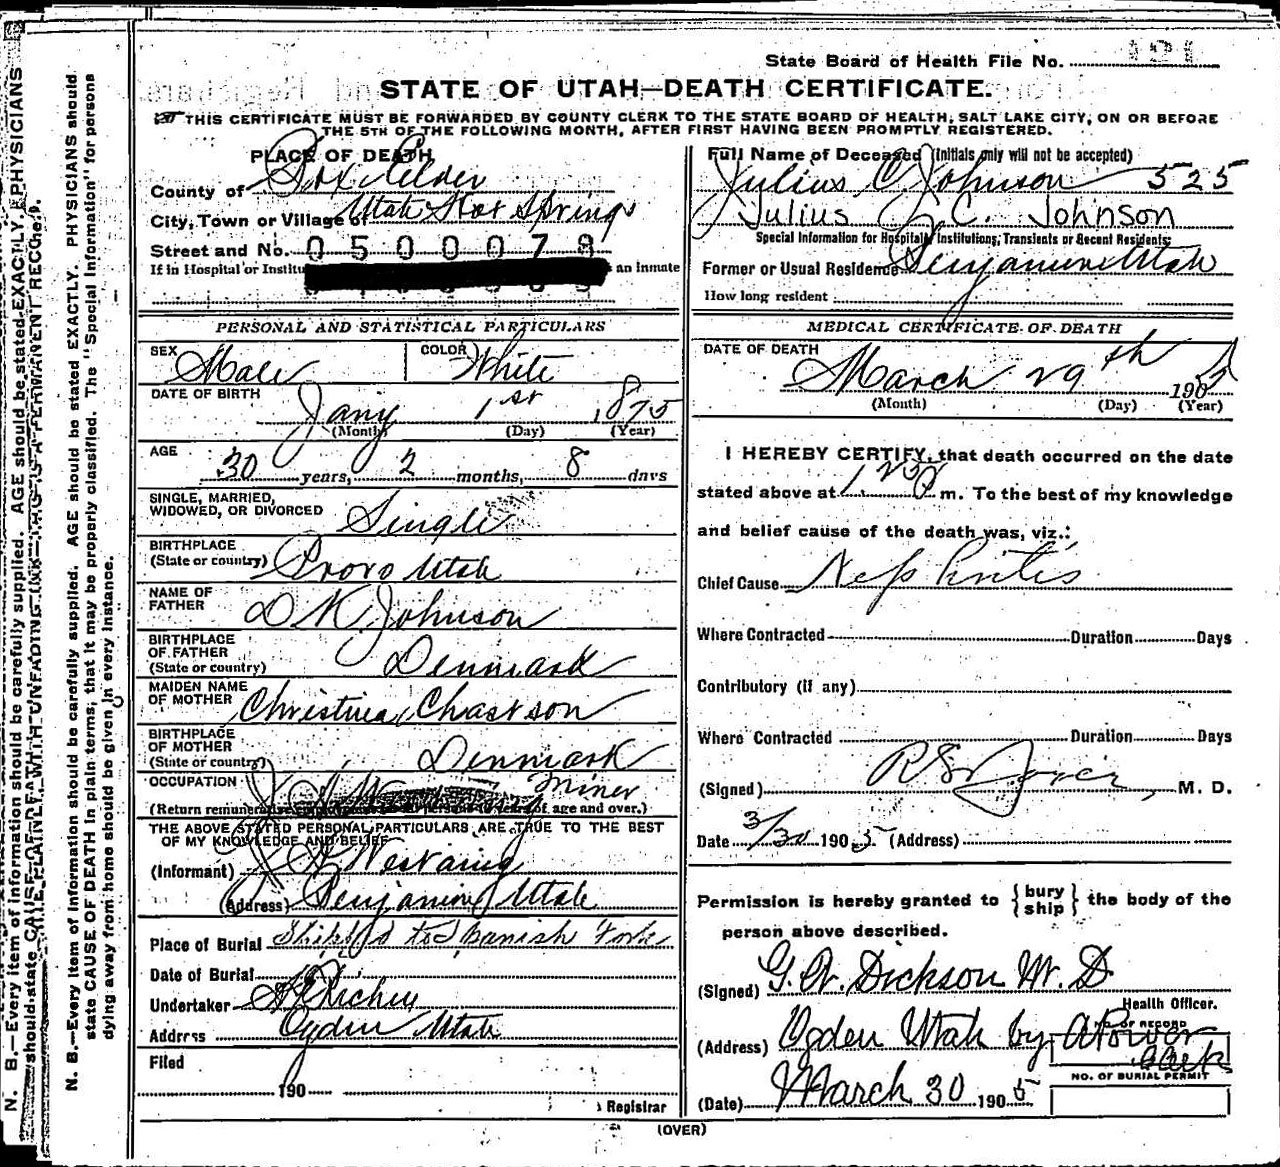 N. B.—Every item of information should be carefully supplied. AGE should be stated EXACTLY. PHYSICIANS
should state CAUSE OF DEATH in plain terms; that it may be properly classified. The "Special Information" for persons
dying away from home should be given in every instance.
State Board of Health File No. 191
STATE OF UTAH—DEATH CERTIFICATE.
THIS CERTIFICATE MUST BE FORWARDED BY COUNTY CLERK TO THE STATE BOARD OF HEALTH, SALT LAKE CITY, ON OR BEFORE
THE 5TH OF THE FOLLOWING MONTH, AFTER FIRST HAVING BEEN PROMPTLY REGISTERED.
PLACE OF DEATH
County of Box Elder
City, Town or Village of Utah Hot Springs
Street and No. 0500078
If in Hospital or Institu an inmate
PERSONAL AND STATISTICAL PARTICULARS
SEX Male COLOR White
DATE OF BIRTH
Jany 1st 1875
(Month) (Day) (Year)
AGE
30 years, 2 months, 8 days
SINGLE, MARRIED,
WIDOWED, OR DIVORCED Single
BIRTHPLACE
(State or country) Provo Utah
NAME OF
FATHER D N Johnson
BIRTHPLACE
OF FATHER
(State or country) Denmark
MAIDEN NAME
OF MOTHER Christina
BIRTHPLACE
OF MOTHER
(State or country) Denmark
OCCUPATION Miner
(Return remunerative of age and over.)
THE ABOVE STATED PERSONAL PARTICULARS ARE TRUE TO THE BEST
OF MY KNOWLEDGE AND BELIEF
(Informant)
(Address) Benjamin Utah
Place of Burial Shipped to Spanish Fork
Date of Burial
Undertaker Richey
Address Ogden Utah
Filed
190
Registrar
Full Name of Deceased (Initials only will not be accepted)
Julius C Johnson 525
Julius C. Johnson
Special Information for Hospitals, Institutions, Transients or Recent Residents
Former or Usual Residence Benjamin Utah
How long resident
MEDICAL CERTIFICATE OF DEATH
DATE OF DEATH
March 29th 1905
(Month) (Day) (Year)
I HEREBY CERTIFY, that death occurred on the date
stated above at m. To the best of my knowledge
and belief cause of the death was, viz.:
Chief Cause Nephritis
Where Contracted Duration Days
Contributory (if any)
Where Contracted Duration Days
(Signed) M. D.
Date 3/30 1905 (Address)
Permission is hereby granted to {bury ship} the body of the
person above described.
(Signed) G. W. Dickson M. D
Health Officer.
(Address) Ogden Utah by A Power
Clerk
OF RECORD
NO. OF BURIAL PERMIT
(Date) March 30 1905
(OVER)